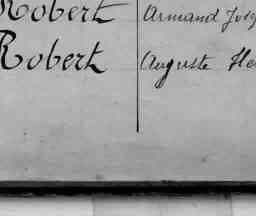 Robert Armand
Robert Auguste